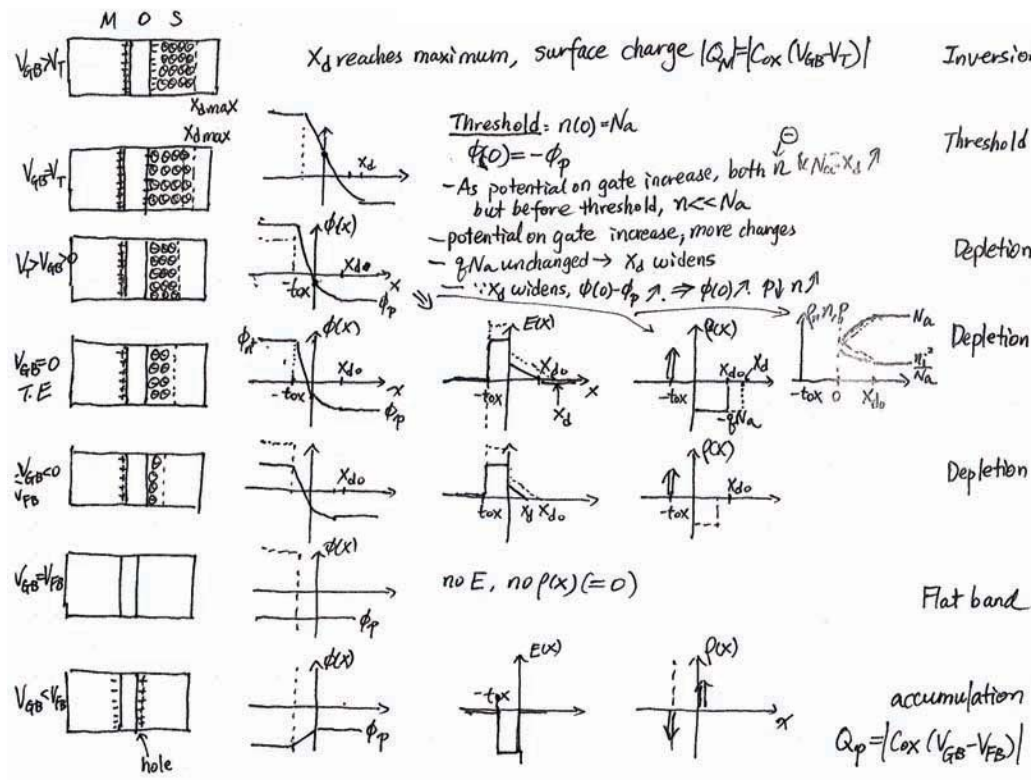 M O S
V_GB>V_T
X_d reaches maximum, surface charge |Q_N|=|Cox(V_GB-V_T)|
Inversion
X_dmax
X_dmax
V_GB=V_T
X_d
Threshold: n(0)=Na
ϕ(0)=-ϕ_p
- As potential on gate increase, both n & Na-X_d ↗
⊖
but before threshold, n<<Na
Threshold
V_T>V_GB>0
ϕ(x)
X_do
-tox
x
ϕ_p
- potential on gate increase, more charges
- qNa unchanged → X_d widens
- ∵ X_d widens, ϕ(0)-ϕ_p ↗. ⇒ ϕ(0)↗. p↓ n↗
Depletion
V_GB=0
T.E
ϕ(x)
X_do
-tox
x
ϕ_p
E(x)
X_do
-tox
x
X_d
ρ(x)
X_do
X_d
-tox
-qNa
Na
n_i²/Na
-tox 0 X_do
Depletion
V_GB<0
V_FB
X_do
E(x)
tox
X_d
X_do
ρ(x)
-tox
X_do
Depletion
V_GB=V_FB
ϕ(x)
ϕ_p
no E, no ρ(x)(=0)
Flat band
V_GB<V_FB
hole
ϕ(x)
ϕ_p
E(x)
-tox
ρ(x)
x
accumulation
Q_p=|Cox(V_GB-V_FB)|